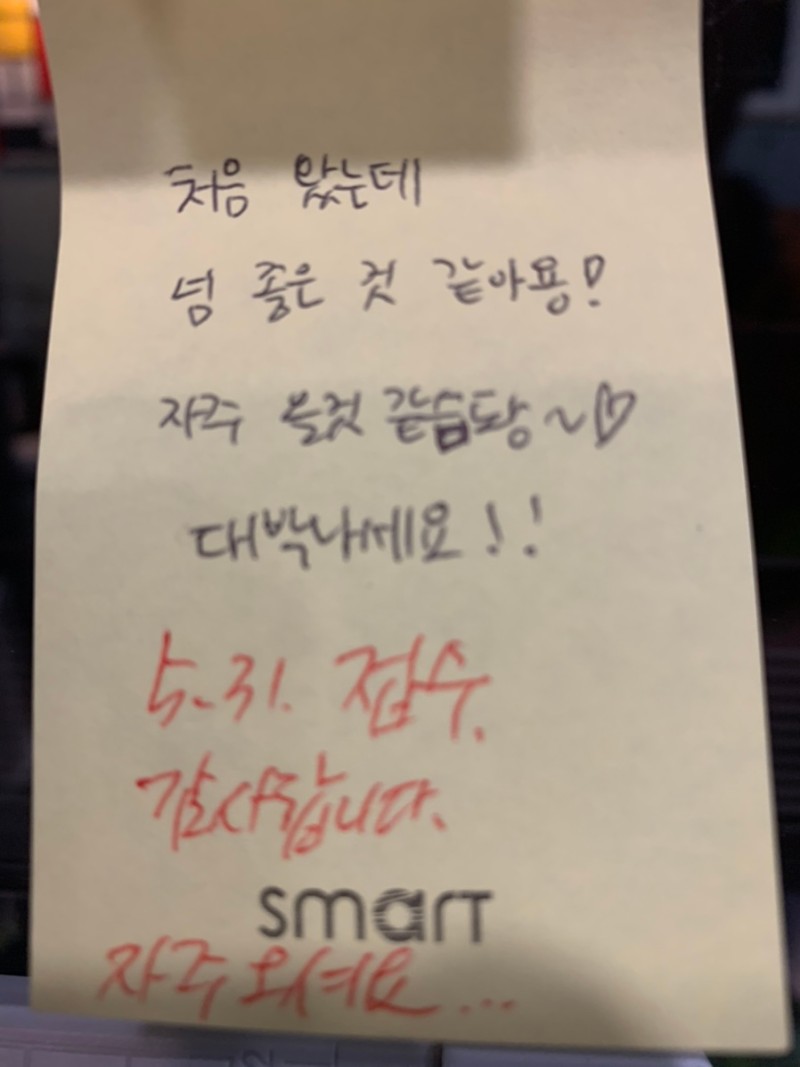 처음 왔는데
넘 좋은 것 같아용!
자주 올것 같습돵~♡
대박나세요!!
5.31. 접수.
감사합니다.
smart
자주 오셔요...